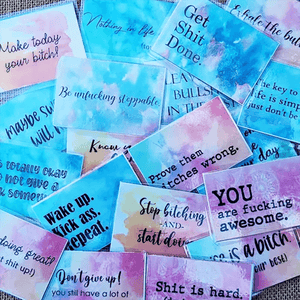 Make today
your bitch!
Nothing in life
Get
Shit
Done.
the key to
life is simple
just don't be
Be unfucking stoppable
LEAVE
BULLS
IN THE
Maybe
will
Know
Prove them
bitches wrong.
day
totally okay
not give a
YOU
are fucking
awesome.
Wake up.
Kick ass.
Repeat.
Stop bitching
-AND-
start doin
is a bitch
doing great!
shit up!)
Don't give up!
you still have a lot of
Shit is hard.